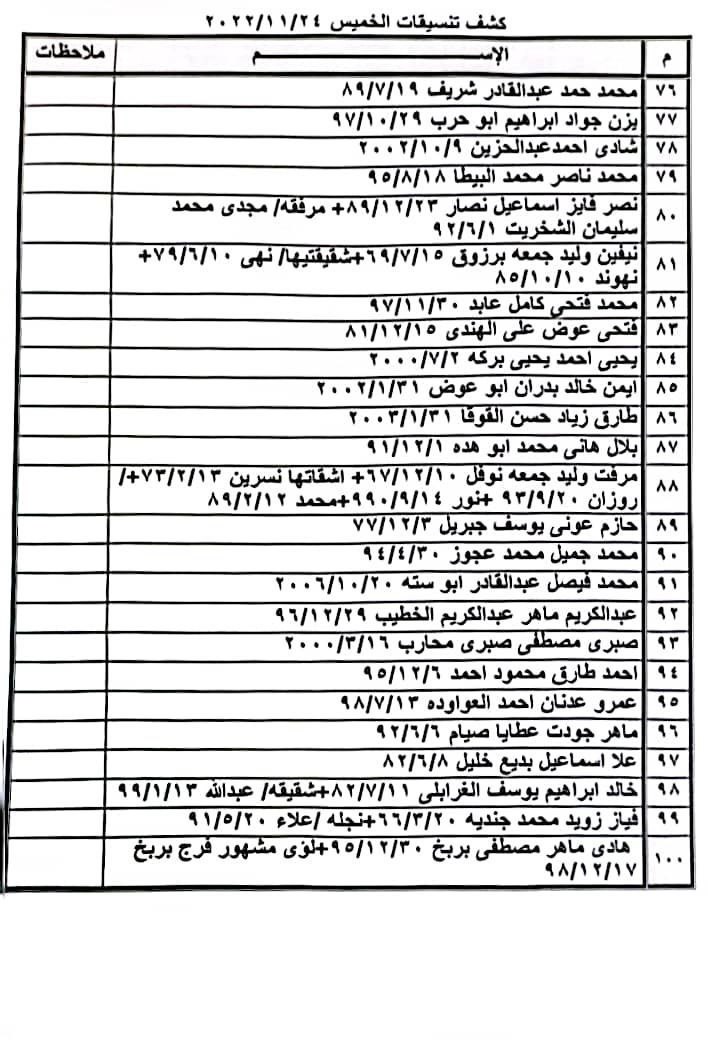 كشف تنسيقات الخميس ٢٠٢٢/١١/٢٤
م الإســـم ملاحظات
٧٦ محمد حمد عبدالقادر شريف ٨٩/٧/١٩
٧٧ يزن جواد ابراهيم ابو حرب ٩٧/١٠/٢٩
٧٨ شادى احمدعبدالحزين ٢٠٠٢/١٠/٩
٧٩ محمد ناصر محمد البيطا ٩٥/٨/١٨
٨٠ نصر فايز اسماعيل نصار ٨٩/١٢/٢٣+ مرفقه/ مجدى محمد
سليمان الشخريت ٩٢/٦/١
٨١ نيفين وليد جمعه برزوق ٦٩/٧/١٥+شقيقتيها/ نهى ٧٩/٦/١٠+
نهوند ٨٥/١٠/١٠
٨٢ محمد فتحى كامل عابد ٩٧/١١/٣٠
٨٣ فتحى عوض على الهندى ٨١/١٢/١٥
٨٤ يحيى احمد يحيى بركه ٢٠٠٠/٧/٢
٨٥ ايمن خالد بدران ابو عوض ٢٠٠٢/١/٣١
٨٦ طارق زياد حسن القوقا ٢٠٠٣/١/٣١
٨٧ بلال هانى محمد ابو هده ٩١/١٢/١
٨٨ مرفت وليد جمعه نوفل ٦٧/١٢/١٠+ اشقاتها نسرين ٧٣/٢/١٣+/
روزان ٩٣/٩/٢٠ +نور ٩٩٠/٩/١٤+محمد ٨٩/٢/١٢
٨٩ حازم عونى يوسف جبريل ٧٧/١٢/٣
٩٠ محمد جميل محمد عجوز ٩٤/٤/٣٠
٩١ محمد فيصل عبدالقادر ابو سته ٢٠٠٦/١٠/٢٠
٩٢ عبدالكريم ماهر عبدالكريم الخطيب ٩٦/١٢/٢٩
٩٣ صبرى مصطفى صبرى محارب ٢٠٠٠/٣/١٦
٩٤ احمد طارق محمود احمد ٩٥/١٢/٦
٩٥ عمرو عدنان احمد العواوده ٩٨/٧/١٣
٩٦ ماهر جودت عطايا صيام ٩٢/٦/٦
٩٧ علا اسماعيل بديع خليل ٨٢/٦/٨
٩٨ خالد ابراهيم يوسف الغرابلى ٨٢/٧/١١+شقيقه/ عبدالله ٩٩/١/١٣
٩٩ فياز زويد محمد جنديه ٦٦/٣/٢٠+نجله /علاء ٩١/٥/٢٠
١٠٠ هادى ماهر مصطفى بربخ ٩٥/١٢/٣٠+لؤى مشهور فرج بربخ
٩٨/١٢/١٧